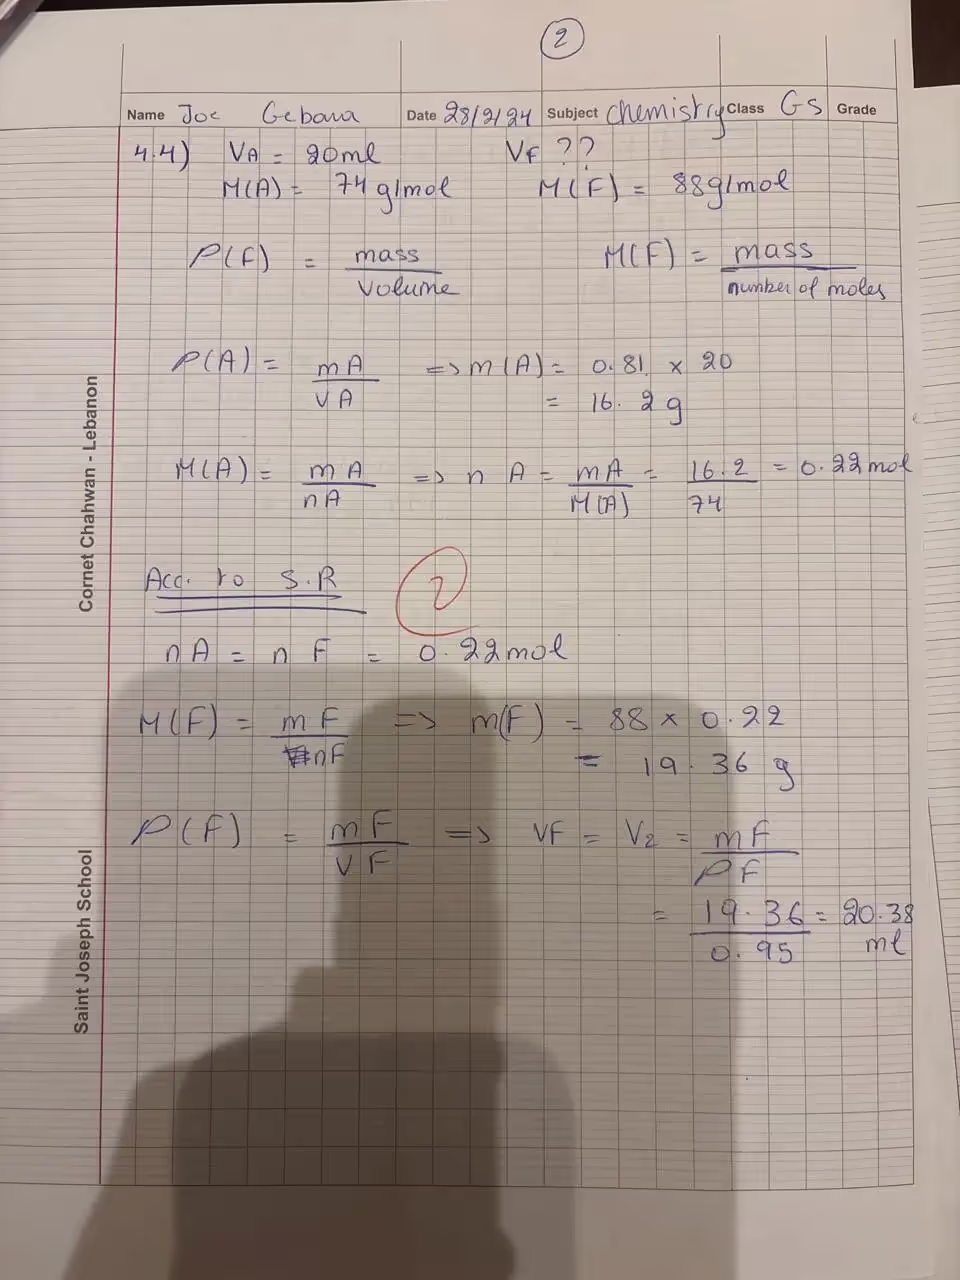 2
Name Joe Gebara Date 28/2/24 Subject chemistry Class GS Grade
4.4) VA = 20ml VF ??
M(A) = 74 g/mol M(F) = 88g/mol
ρ(F) = mass / volume M(F) = mass / number of moles
ρ(A) = mA / VA => m(A) = 0.81 × 20
= 16.2 g
M(A) = mA / nA => n A = mA / M(A) = 16.2 / 74 = 0.22 mol
Acc. to S.R
2
nA = n F = 0.22 mol
M(F) = mF / nF => m(F) = 88 × 0.22
= 19.36 g
ρ(F) = mF / VF => VF = V2 = mF / ρF
= 19.36 / 0.95 = 20.38 ml
Cornet Chahwan - Lebanon
Saint Joseph School